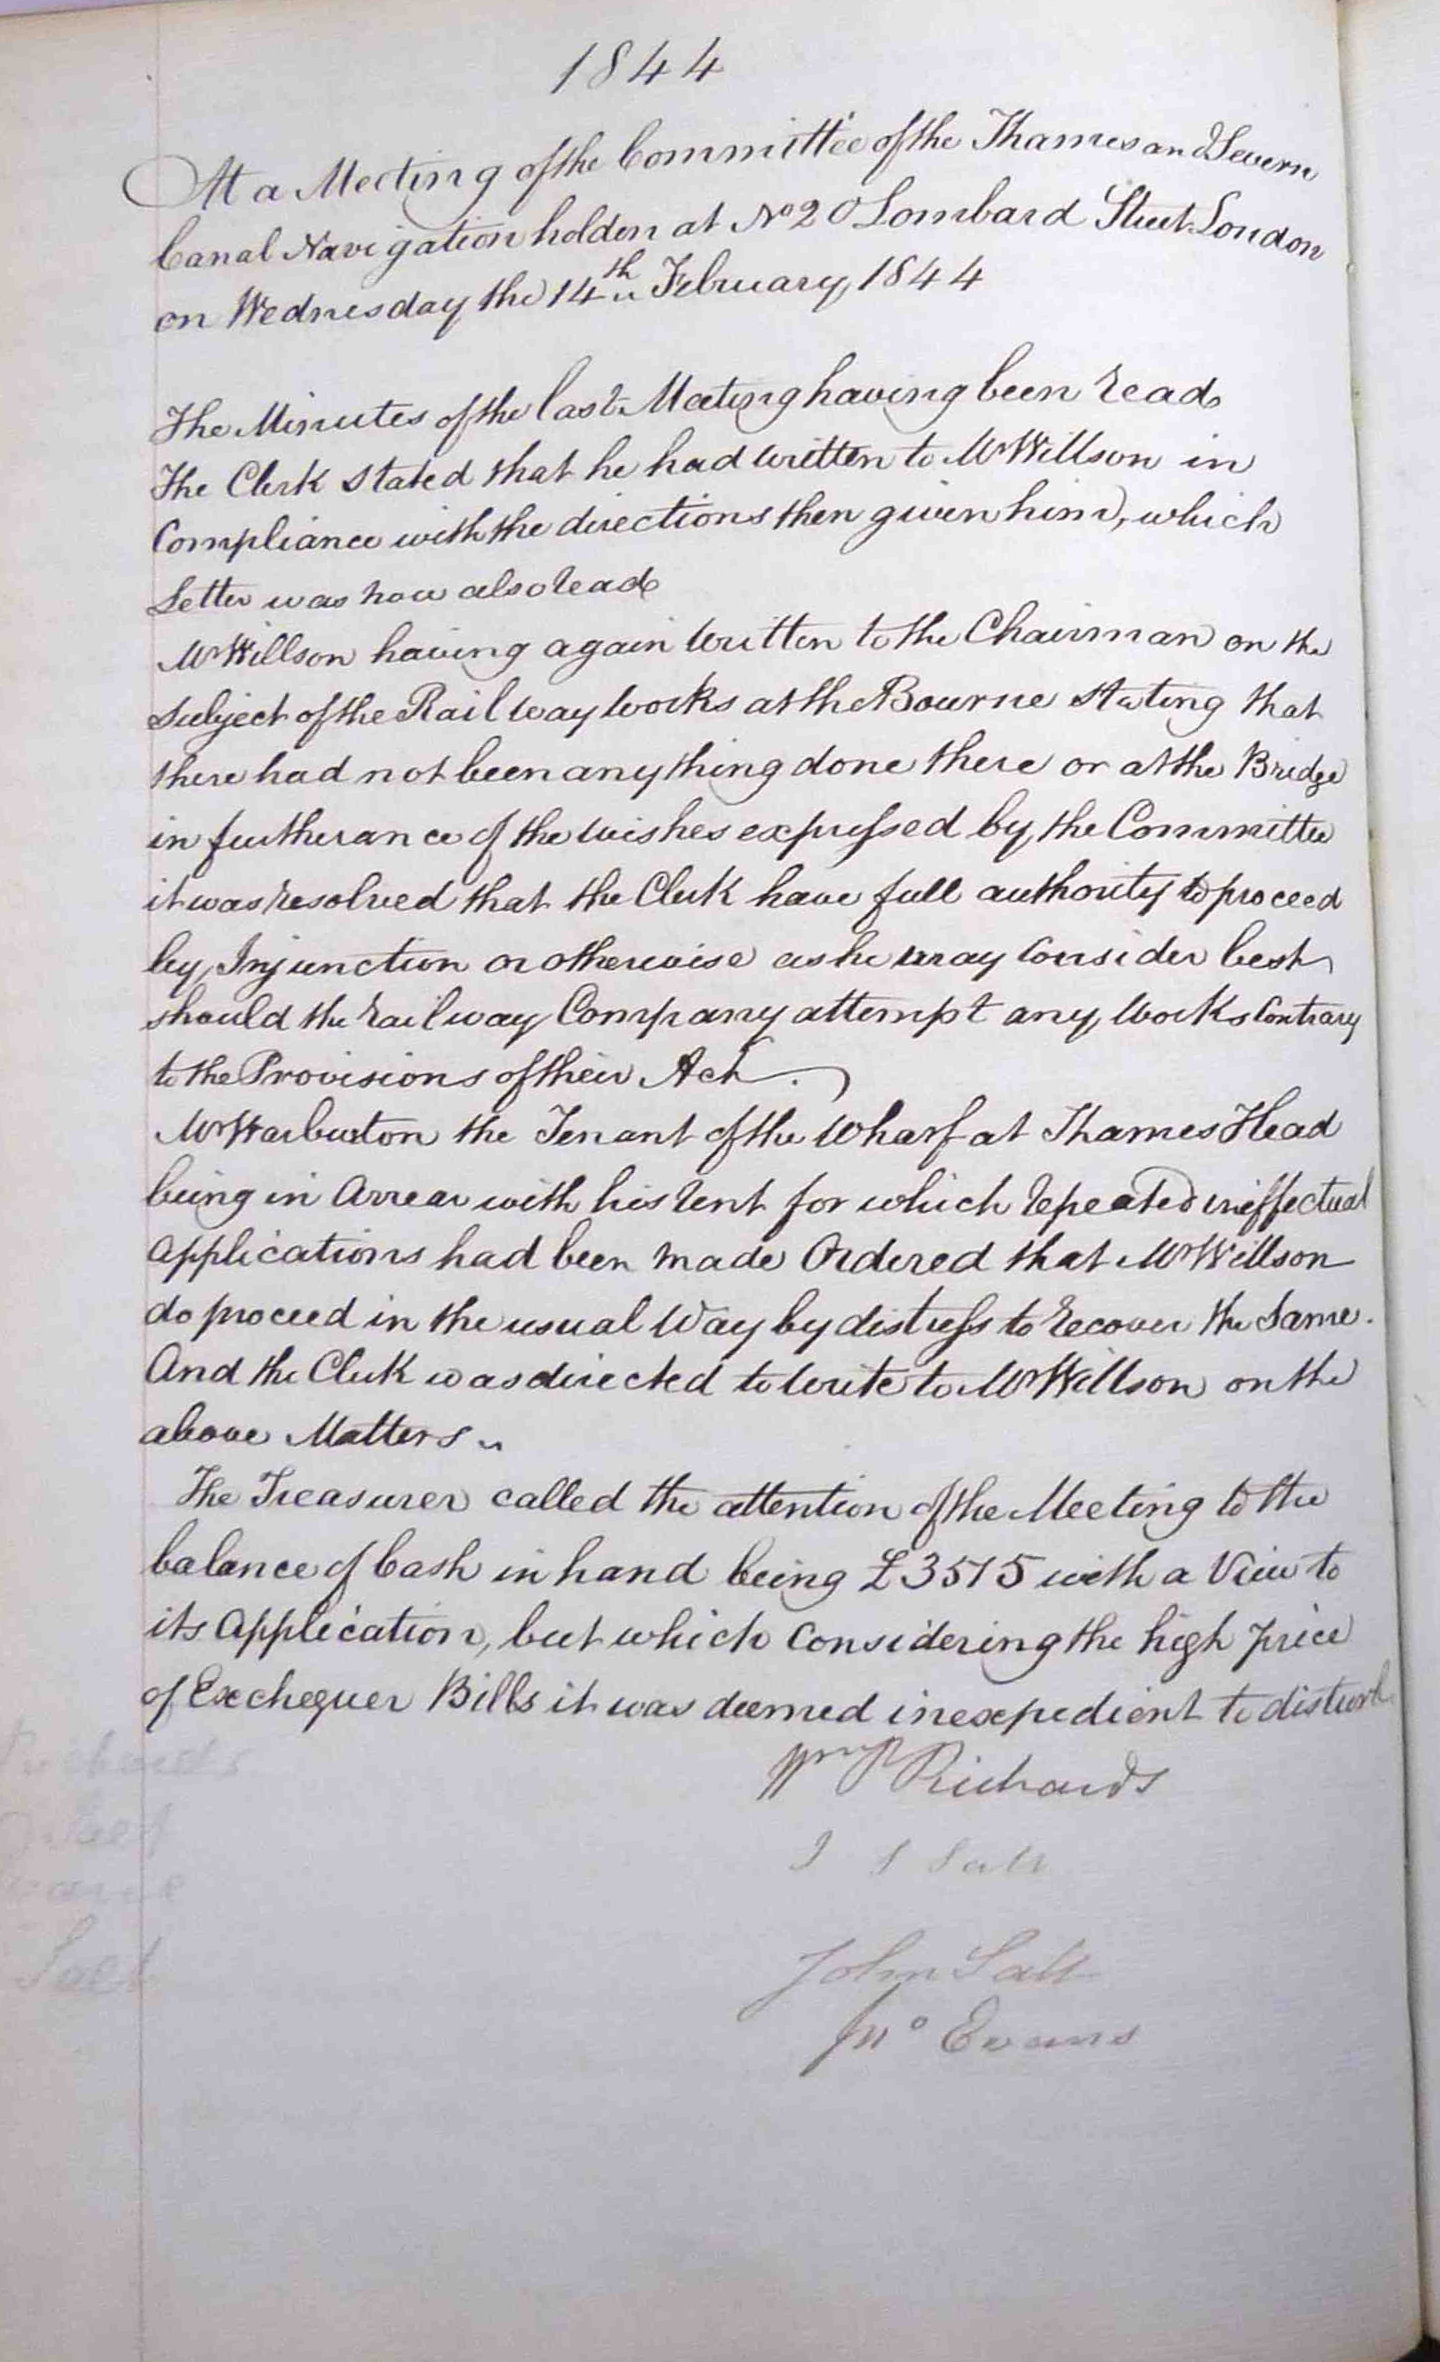 1844
At a Meeting of the Committee of the Thames and Severn
Canal Navigation holden at No 20 Lombard Street London
on Wednesday the 14th February, 1844
The Minutes of the last Meeting having been read
The Clerk stated that he had written to Mr Willson in
Compliance with the directions then given him, which
Letter was now also read
Mr Willson having again written to the Chairman on the
subject of the Railway works at the Bourne stating that
there had not been anything done there or at the Bridge
in furtherance of the wishes expressed by the Committee
it was resolved that the Clerk have full authority to proceed
by Injunction or otherwise as he may Consider best
should the railway Company attempt any Works Contrary
to the Provisions of their Act.
Mr Warburton the Tenant of the Wharf at Thames Head
being in Arrear with his rent for which repeated ineffectual
Applications had been made Ordered that Mr Willson
do proceed in the usual Way by distress to recover the Same.
And the Clerk was directed to write to Mr Willson on the
above Matters
The Treasurer called the attention of the Meeting to the
balance of Cash in hand being £3515 with a View to
its Application, but which Considering the high price
of Exchequer Bills it was deemed inexpedient to disturb
Wm P Richards
J S Salt
John Salt
Jno Evans
Salt